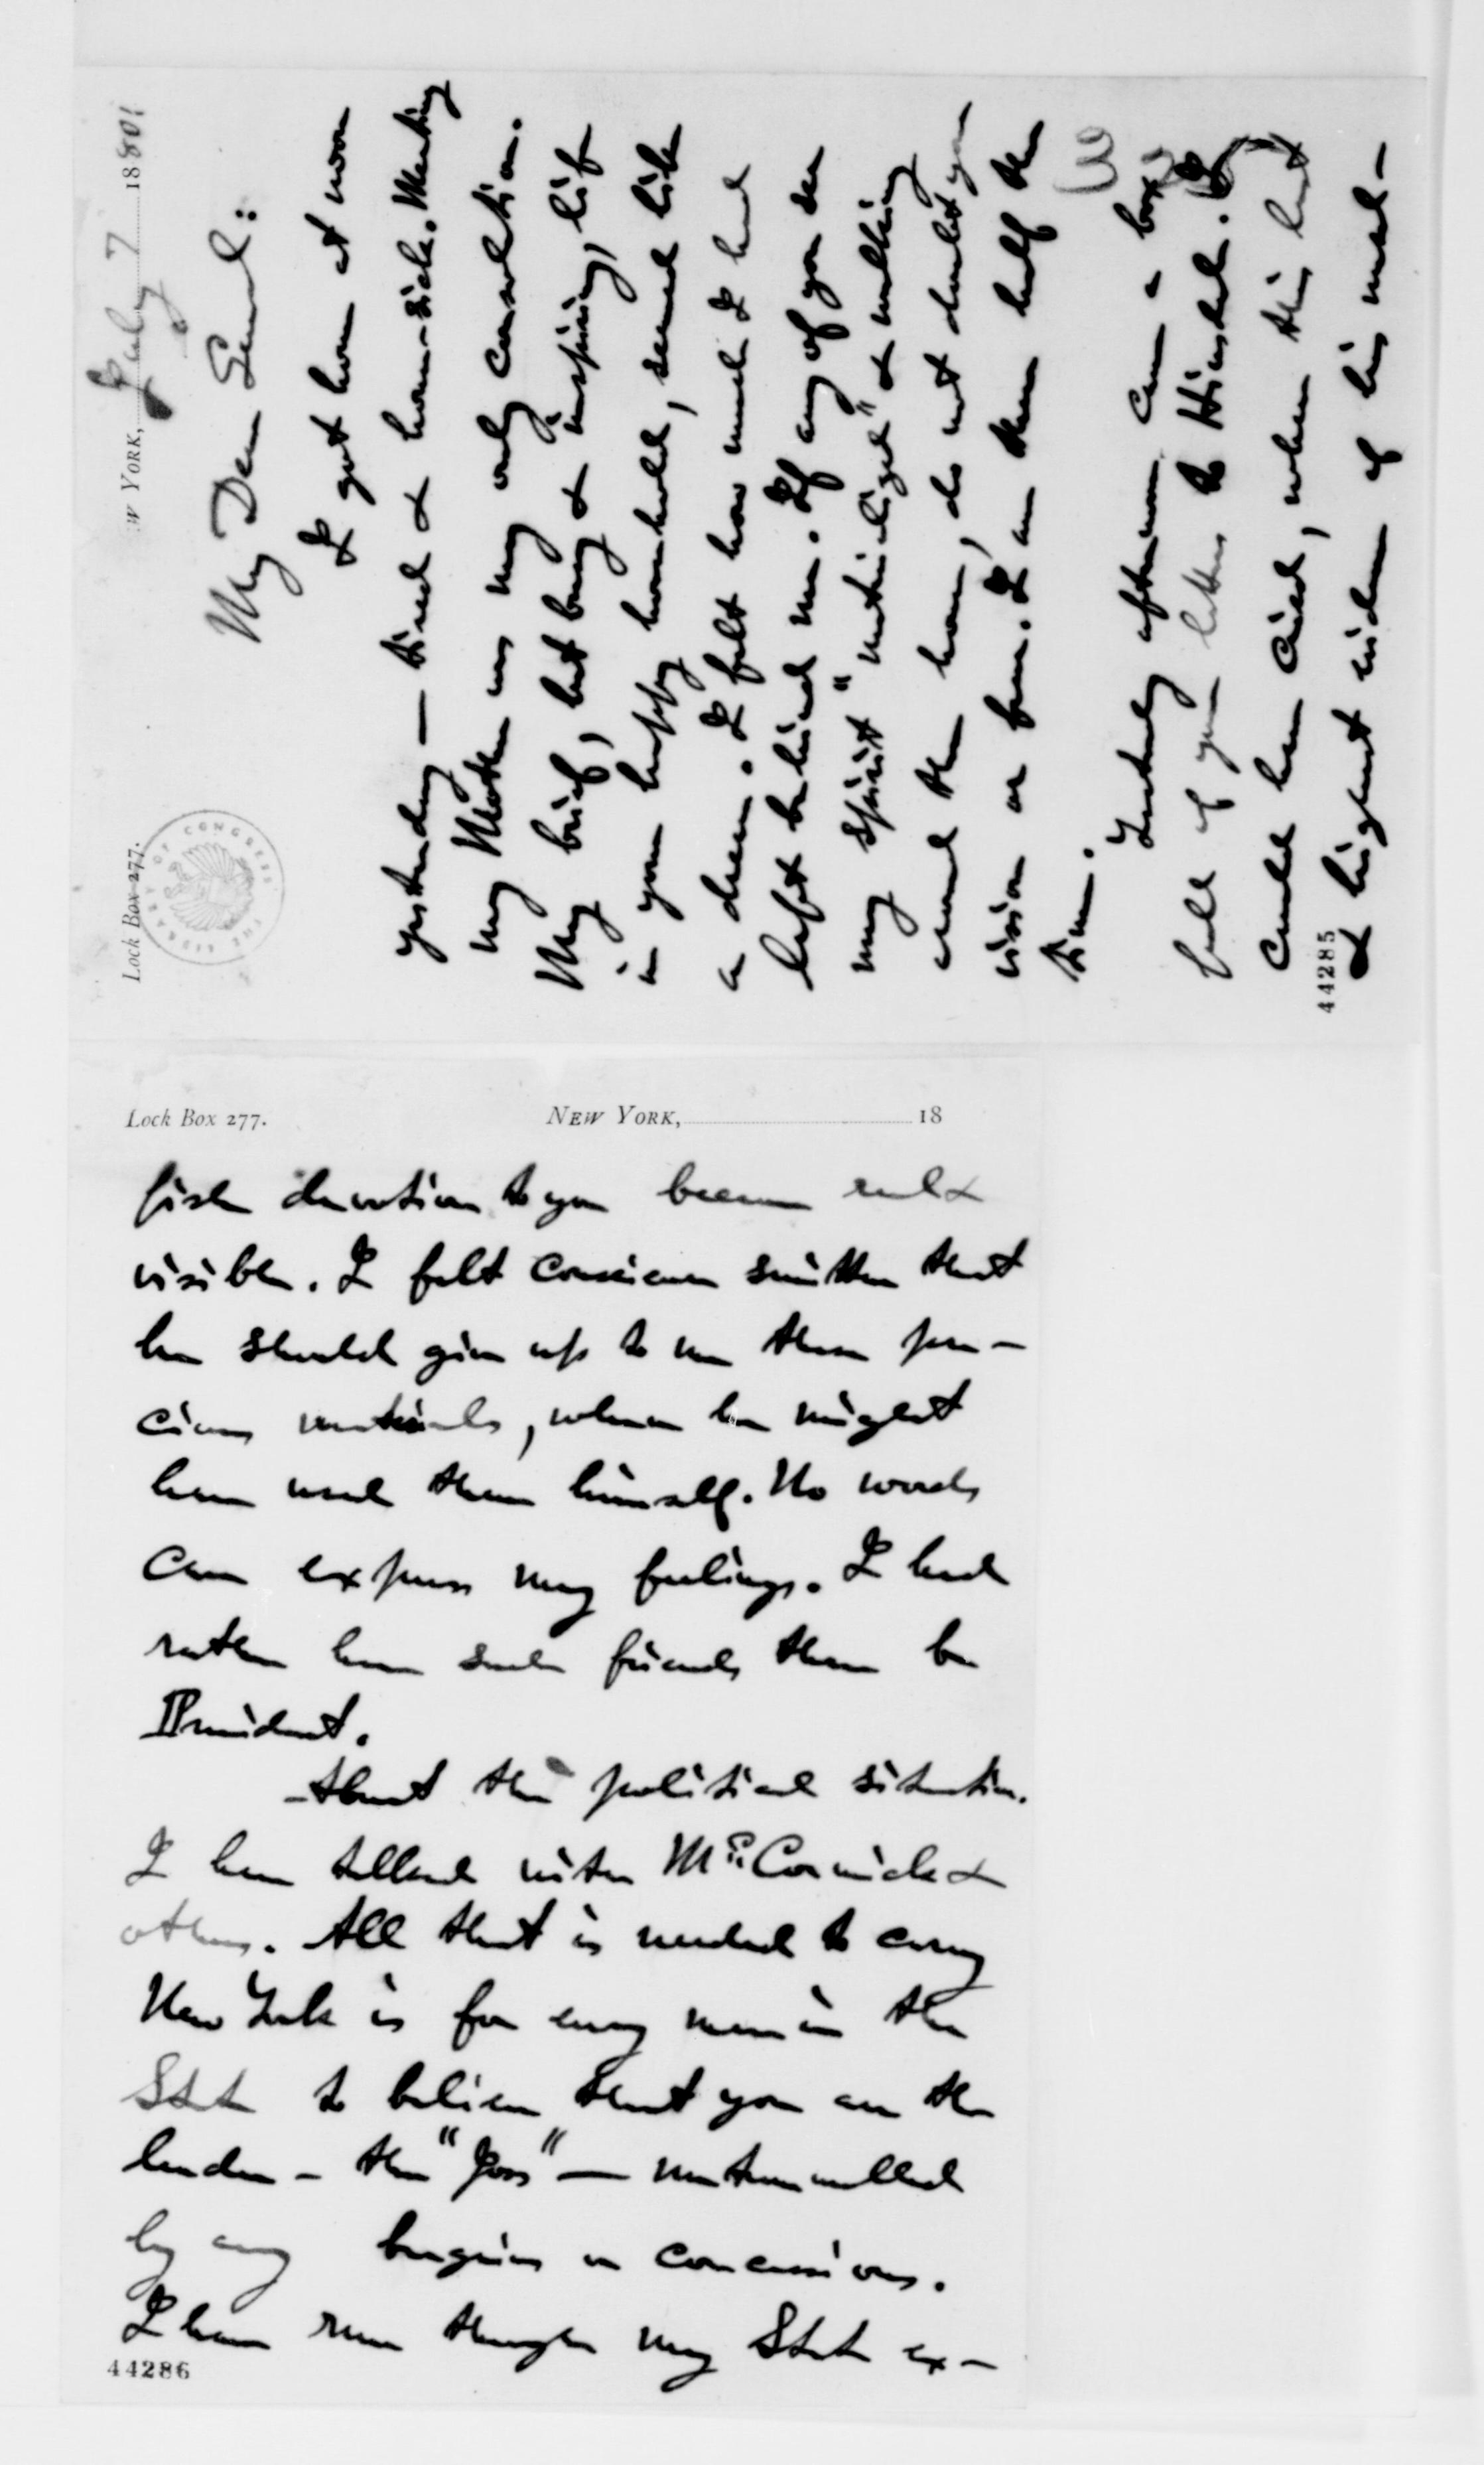 Lock Box 277.
W YORK, July 7 1880!
My Dear General:
I got home at noon
yesterday — tired & home-sick. Meeting
my Mother was my only consolation.
My brief, but busy & inspiring, life
in your happy household, seemed like
a dream. I felt how much I had
left behind me. If any of you see
my spirit "materialized" & walking
around the house, do not doubt your
vision or fear. I am there half the
time.
Yesterday afternoon came a box
full of your letters to Hinsdale. I
could have cried, when this last
& highest evidence of his unsel-
44285
THE LIBRARY OF CONGRESS
3
Lock Box 277. NEW YORK, 18
fish devotion to you became real &
visible. I felt conscience smitten that
he should give up to me these pre-
cious materials, when he might
have used them himself. No words
can express my feelings. I had
rather have such friends than be
President.
About the political situation.
I have talked with McCormick &
others. All that is needed to carry
New York is for every man in the
State to believe that you are the
leader — the "Joss" — untrammelled
by any bargains or concessions.
I have run through my State ex-
44286